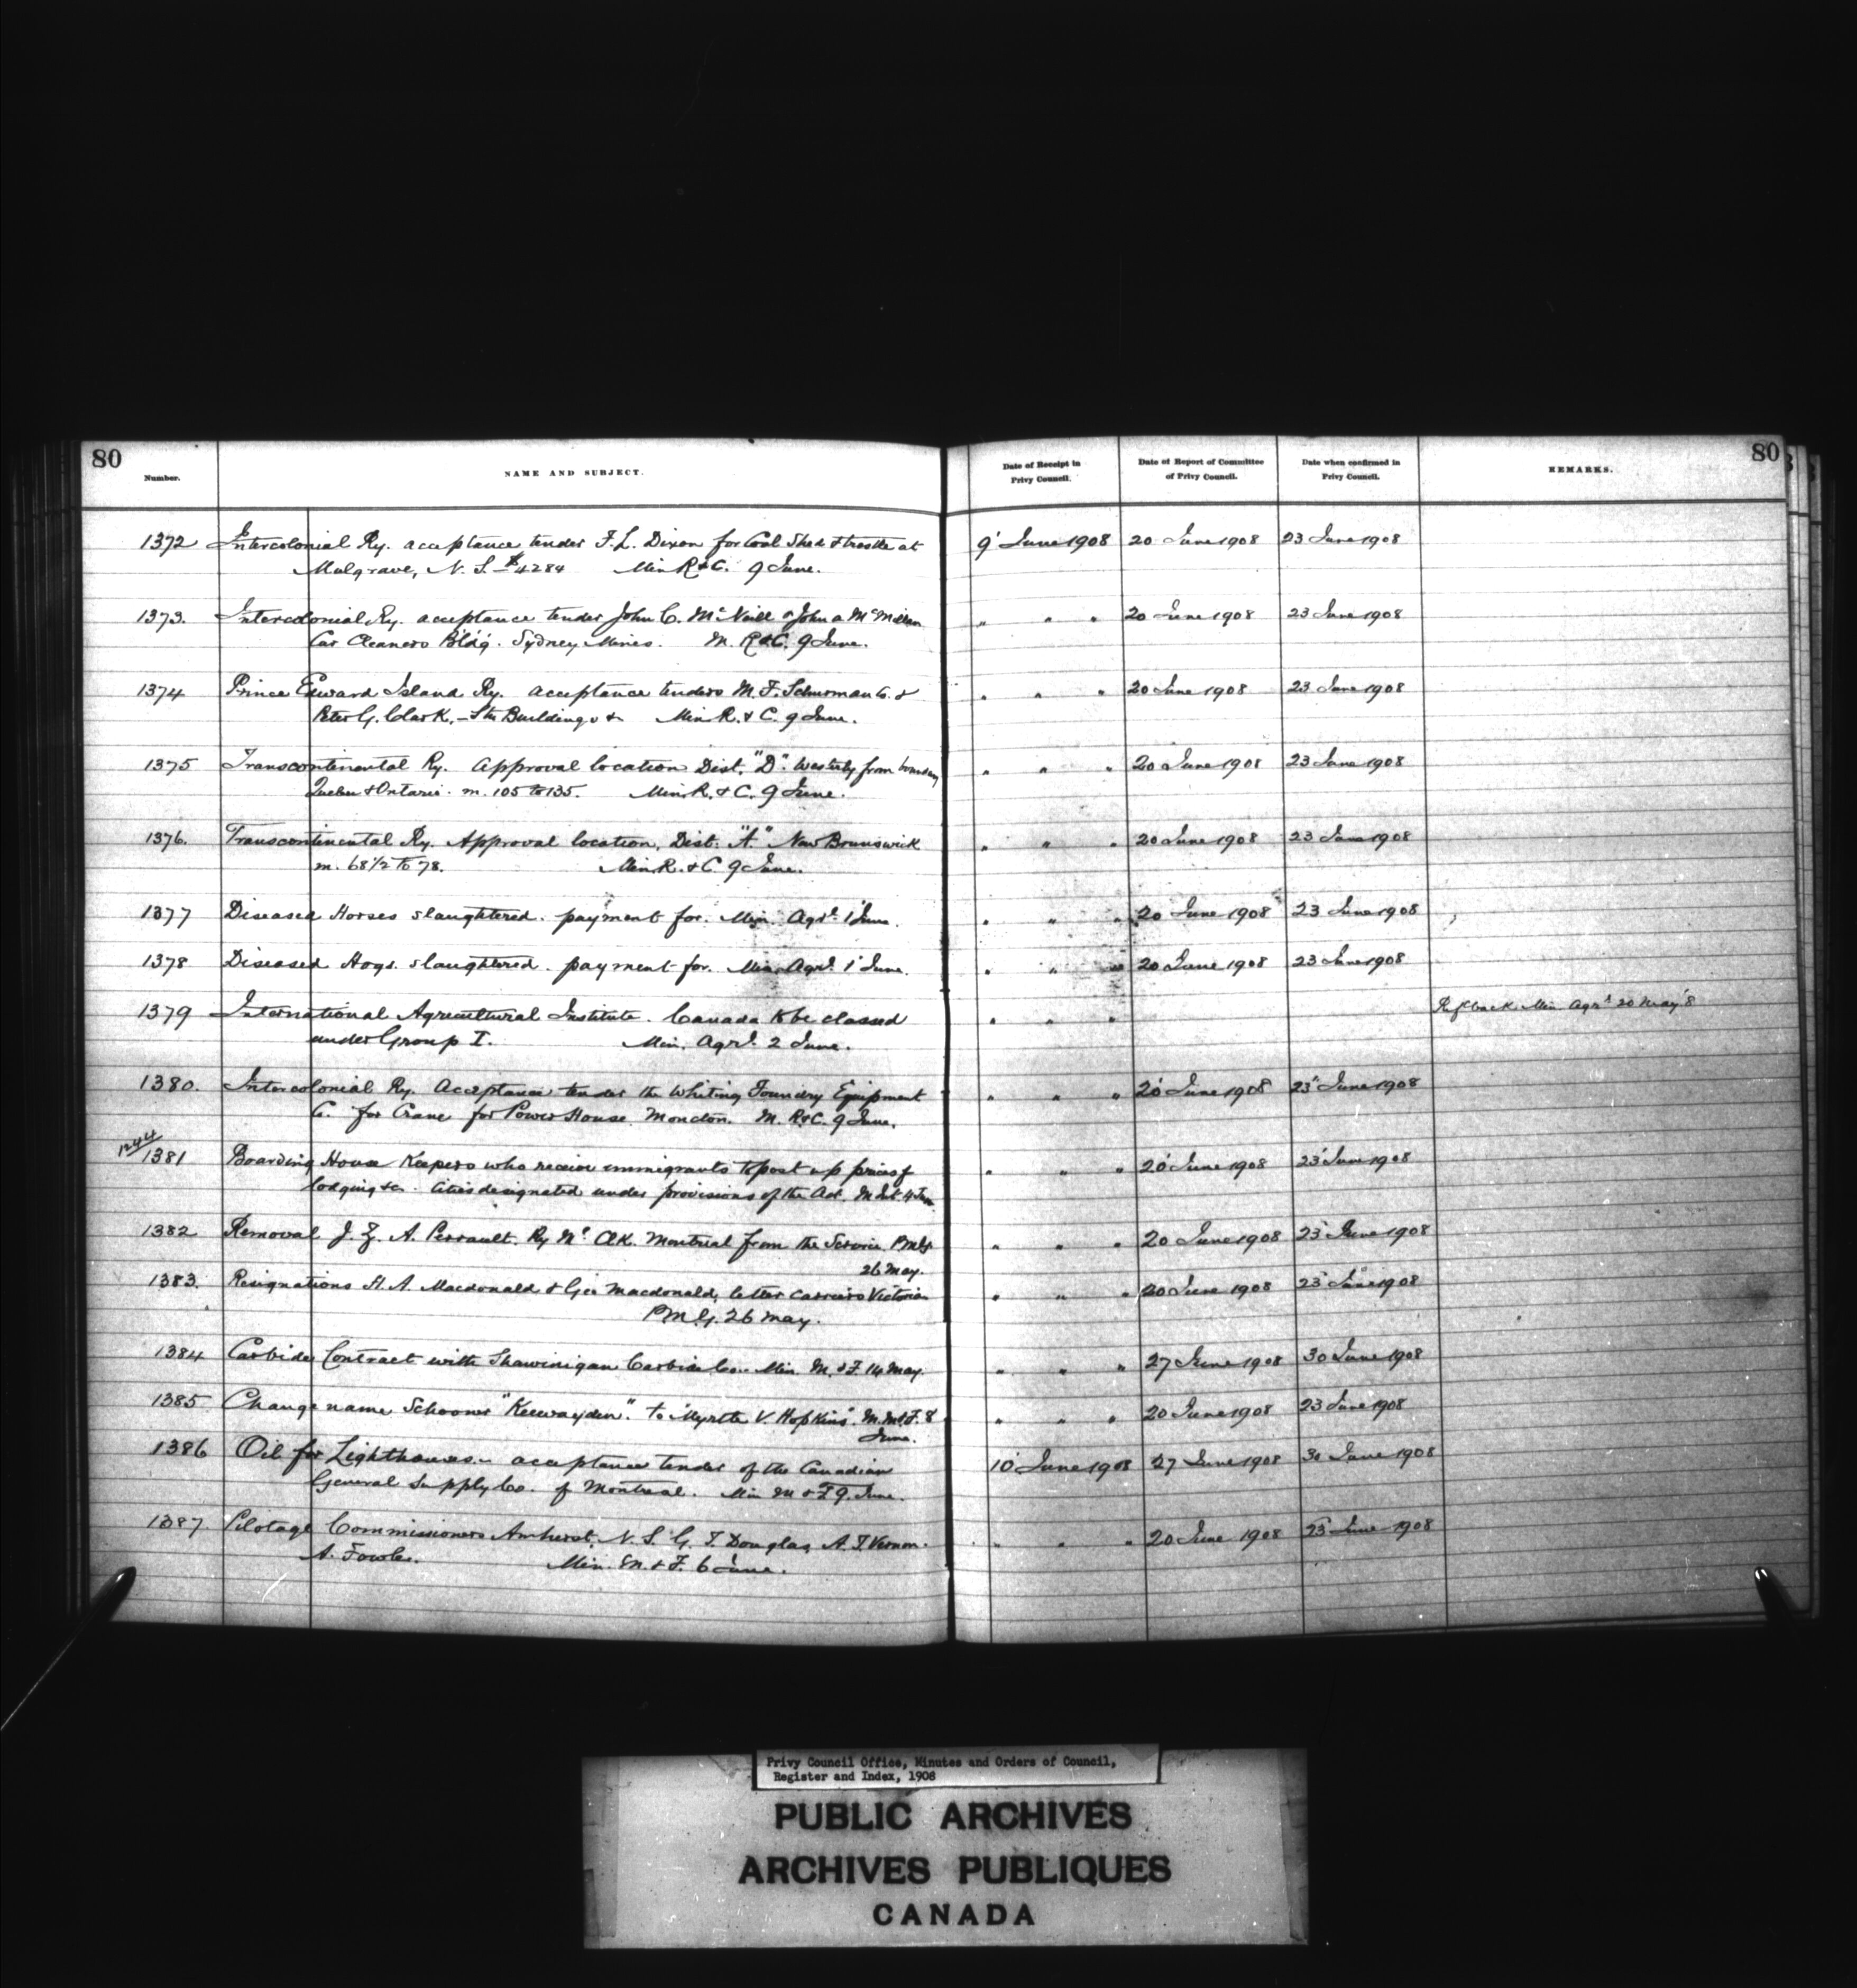 80
Number.
NAME AND SUBJECT.
Date of Receipt in Privy Council.
Date of Report of Committee of Privy Council.
Date when confirmed in Privy Council.
REMARKS.
80
1372 Intercolonial Ry. acceptance tender F. L. Dixon for Coal Shed & trestle at 9' June 1908 20 June 1908 23 June 1908
Mulgrave, N. S. - $4284 Min R & C. 9 June.
1373. Intercolonial Ry. acceptance tender John C. McNeill & John A McMillan " " " 20 June 1908 23 June 1908
Car Cleaners Bldg. Sydney Mines. M. R & C. 9 June.
1374 Prince Edward Island Ry. acceptance tenders M. F. Schurman Co. & " " " 20 June 1908 23 June 1908
Peter G. Clark, - Stn Buildings &c Min R. & C. 9 June.
1375 Transcontinental Ry. Approval location Dist. "D". Westerly from boundary " " " 20 June 1908 23 June 1908
Quebec & Ontario. m. 105 to 135. Min R. & C. 9 June.
1376. Transcontinental Ry. Approval location, Dist. "A" New Brunswick " " " 20 June 1908 23 June 1908
m. 68 1/2 to 78. Min R. & C 9 June.
1377 Diseased Horses slaughtered. payment for. Min Agrl. 1 June. " " " 20 June 1908 23 June 1908
1378 Diseased Hogs. slaughtered. payment for. Min Agrl. 1' June. " " " 20 June 1908 23 June 1908
1379 International Agricultural Institute. Canada to be classed " " " Ref back Min Agrl 20 May '8
under Group I. Min. Agrl. 2 June.
1380. Intercolonial Ry. Acceptance tender the Whiting Foundry Equipment " " " 20' June 1908 23' June 1908
Co. for Crane for Power House Moncton. M. R & C. 9 June.
1244
1381 Boarding House Keepers who receive immigrants to post up prices of " " " 20' June 1908 23' June 1908
lodging &c. Cities designated under provisions of the Act. M Int 4 June
1382 Removal J. Z. A. Perrault. Ry Ml Clk. Montreal from the Service PMG " " " 20 June 1908 23' June 1908
26 May.
1383. Resignations H. A. Macdonald & Geo Macdonald, letter carriers Victoria " " " 20 June 1908 23' June 1908
P.M.G. 26 May.
1384 Carbide Contract with Shawinigan Carbide Co. Min. M. & F. 14 May. " " " 27 June 1908 30 June 1908
1385 Change name Schooner "Keewayden" to "Myrtle V Hopkins". M. M & F. 8 " " " 20 June 1908 23 June 1908
June.
1386 Oil for Lighthouses - acceptance tender of the Canadian 10' June 1908 27 June 1908 30 June 1908
General Supply Co. of Montreal. Min M & F 9. June.
1387. Pilotage Commissioners Amherst, N. S. G. T. Douglas, A. T. Vernon. " " " 20 June 1908 23' June 1908
A. Fowler. Min. M. & F. 6 June.
Privy Council Office, Minutes and Orders of Council,
Register and Index, 1908
PUBLIC ARCHIVES
ARCHIVES PUBLIQUES
CANADA